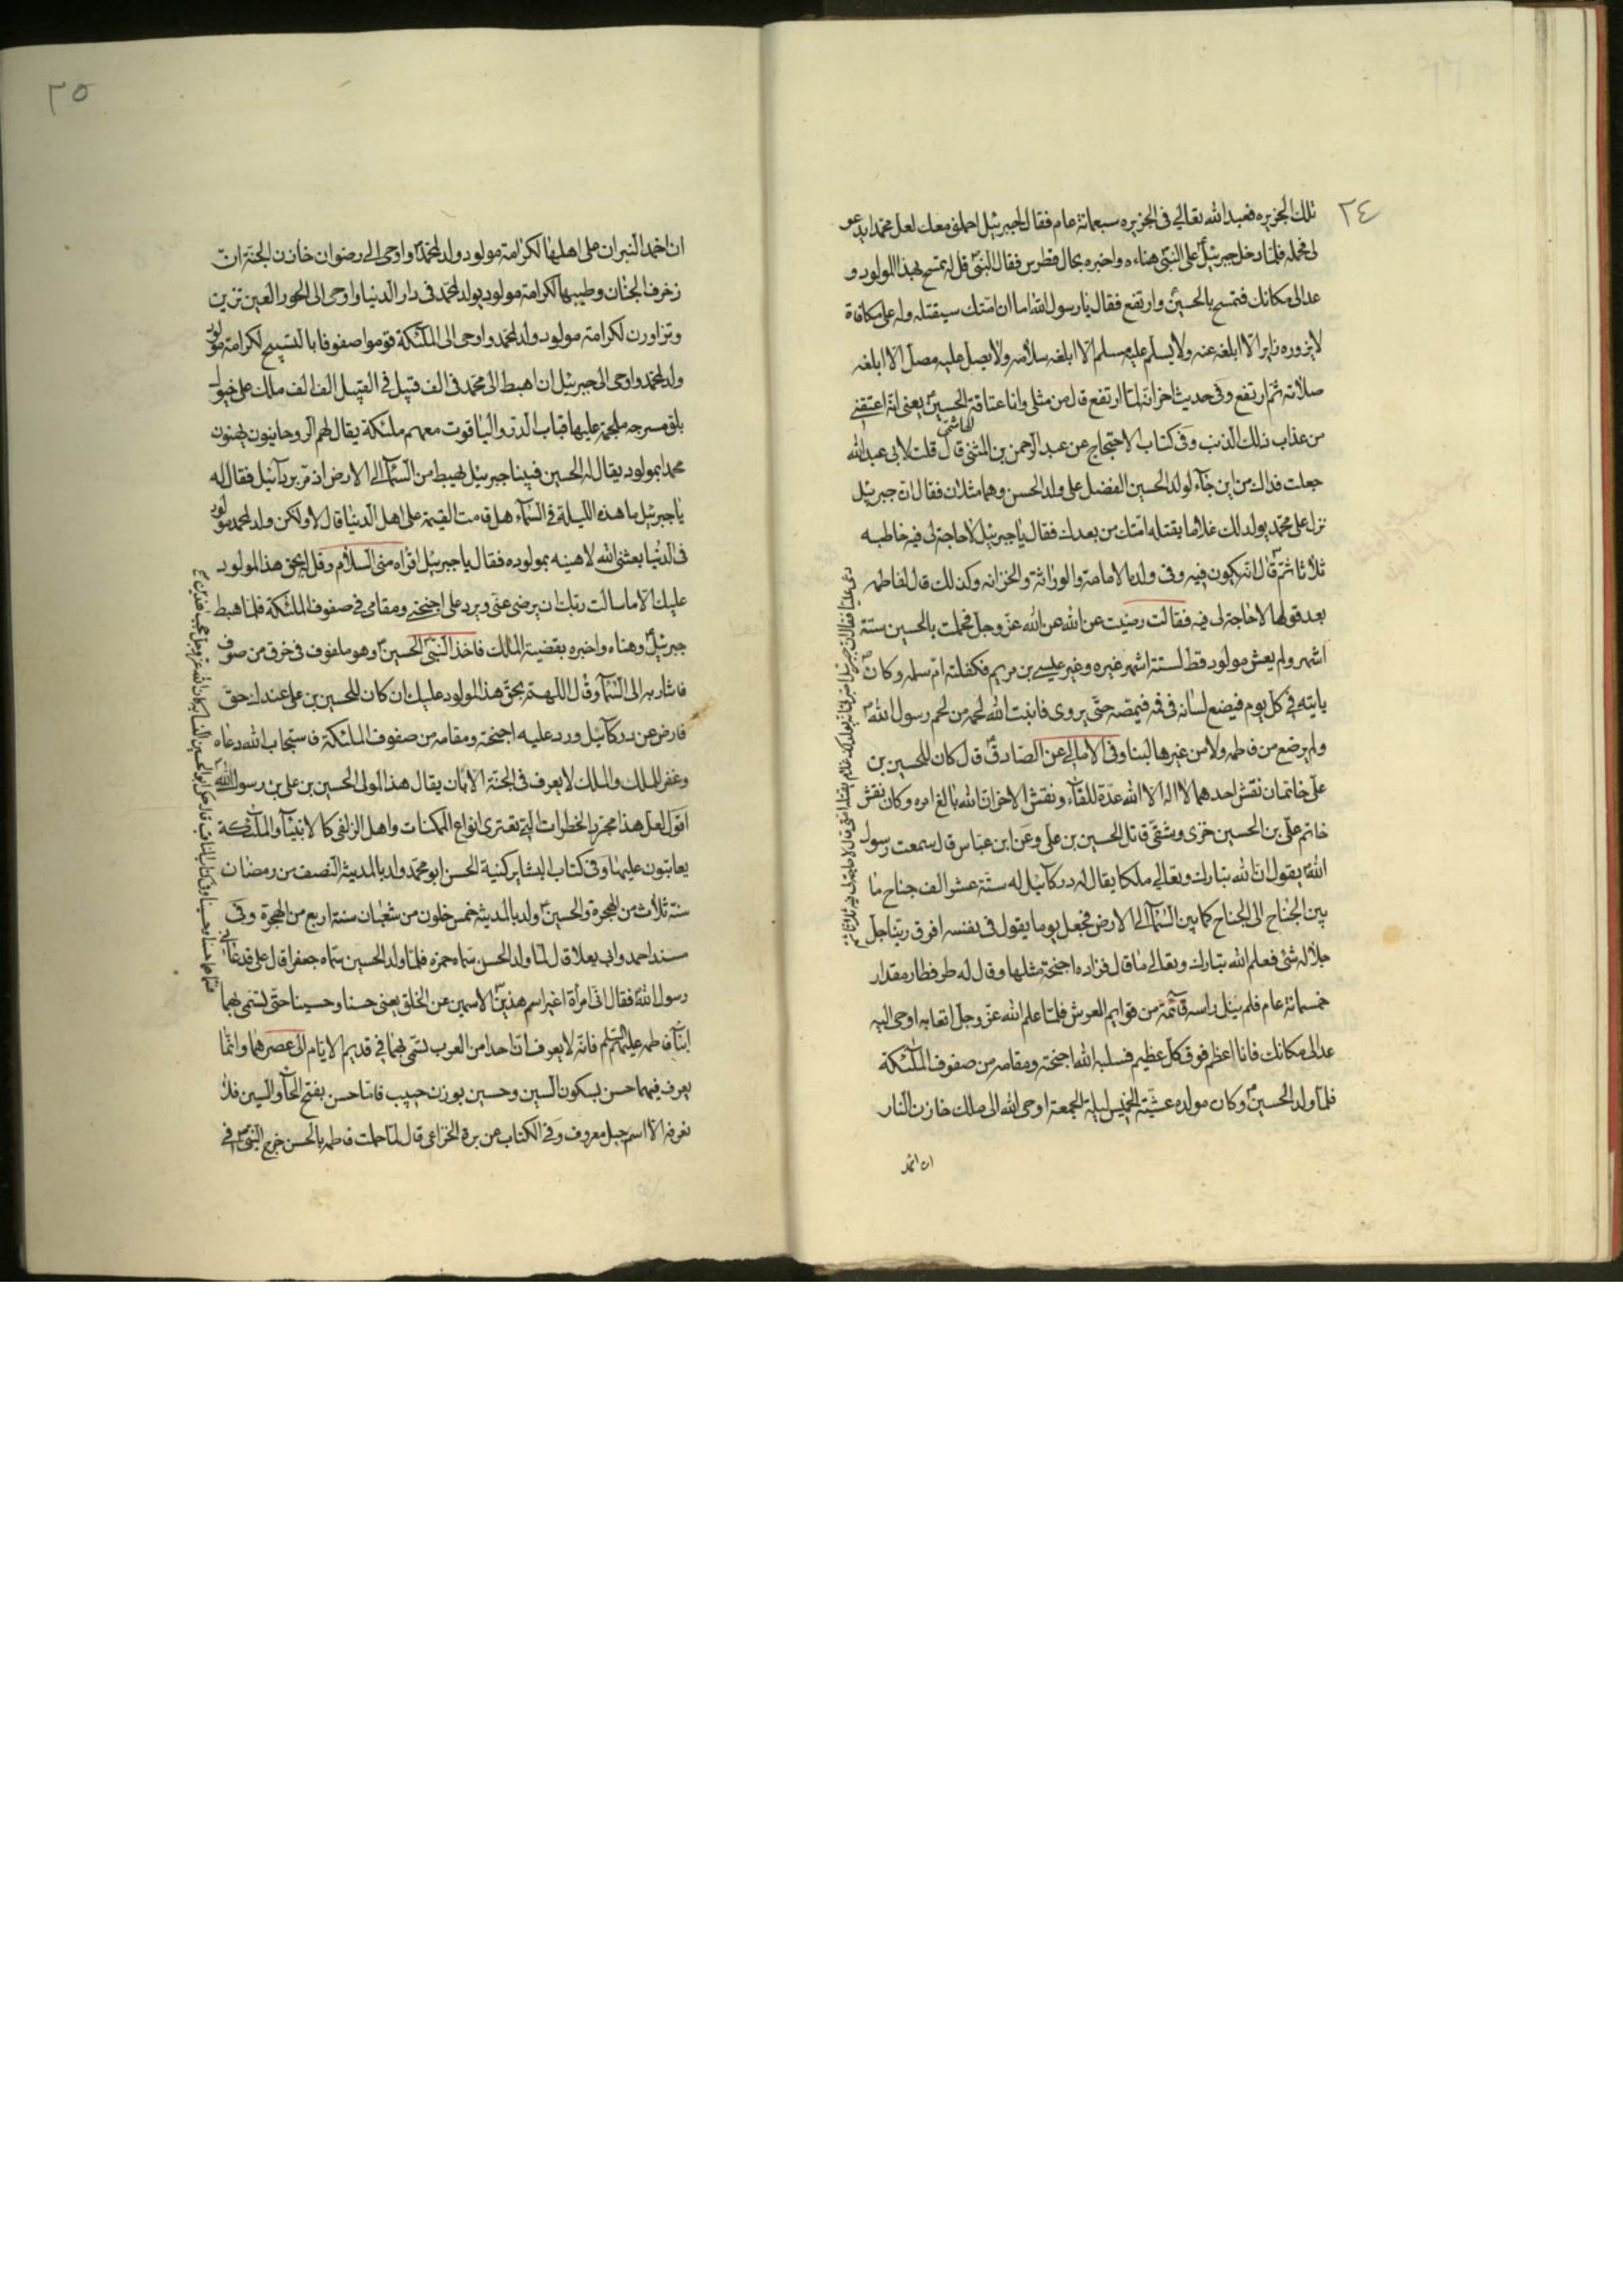 ٢٤
تلك الجزيره فعبد الله تعالى فى الجزيره سبعمائة عام فقال لجبرئيل احملنى معك لعل محمدا يدعو
لى فحمله فلما دخل جبرئيل على النبىّ هناءه واخبره بحال فطرس فقال النبىّ قل له تمسح بهذا المولود و
عد الى مكانك فتمسح بالحسينؑ وارتفع فقال يا رسول الله اما ان امّتك سيقتله وله على مكافاة
لا يزوره زاير الا ابلغه عنه ولا يسلّم عليه مسلم الا ابلغه سلامه ولا يصل عليه مصل الا ابلغه
صلاته ثم ارتفع وفى حديث اخر انه لما ارتفع قال من مثلى وانا عتاقة الحسينؑ يعنى انه اعتقنى
من عذاب ذلك الذنب وفى كتاب الاحتجاج عن عبد الرحمن بن المثنى الهاشمى قال قلت لابى عبد الله
جعلت فداك من اين جآء لولد الحسين الفضل على ولد الحسن وهما مثلان فقال ان جبرئيل
نزل على محمّد يولد لك غلاما يقتله امتك من بعدك فقال يا جبرئيل لا حاجة لى فيه خاطبه
ثلاثا ثم قال انه يكون فيه وفى ولده الامامة والوراثة والخزانه وكذلك قال لفاطمه
بعد قولها لا حاجة لى فيه فقالت رضيت عن الله عن الله عزّ وجل فحملت بالحسين ستة
اشهر ولم يعش مولود قط لستة اشهر غيره وغير عيسى بن مريم فكفلته امّ سلمه وكان
ياتيه فى كل يوم فيضع لسانه فى فمه فيمصّه حتّى يروى فانبت الله لحمه من لحم رسول الله
ولم يرضع من فاطمه ولا من غيرها لبنا وفى الامالى عن الصادقؑ قال كان للحسين بن
علىّ خاتمان نقش احدهما لا اله الا الله عدّة للقآء ونقش الاخر انّ الله بالغ امره وكان نقش
خاتم علىّ بن الحسين خزى وشقى قاتل الحسين بن على وعن ابن عباس قال سمعت رسول
الله يقول انّ لله تبارك وتعالى ملكا يقال له دردآئيل له ستّة عشر الف جناح ما
بين الجناح الى الجناح كما بين السّمآ الى الارض فجعل يوما يقول فى نفسه افوق ربّنا جل
جلاله شئى فعلم الله تبارك وتعالى ما قال فزاده اجنحة مثلها وقال له طر فطار مقدار
خمسمائة عام فلم ينل راسه قآئمة من قوايم العرش فلمّا علم الله عزّ وجل اتعابه اوحى اليه
عد الى مكانك فانا اعظم فوق كل عظيم فسلبه الله اجنحته ومقامه من صفوف الملئكة
فلمّا ولد الحسينؑ وكان مولده عشيّة الخميس ليلة الجمعة اوحى الله الى ملك خازن النار
ان اخمد
٢٥
ان اخمد النيران على اهلها لكرامة مولود ولد لمحمّد واوحى الى رضوان خازن الجنّة ان
زخرف الجنان وطيبها لكرامة مولود يولد لمحمد فى دار الدنيا واوحى الى الحور العين تزين
وتزاورن لكرامة مولود ولد لمحمد واوحى الى الملئكة قوموا صفوفا بالتسبيح لكرامة مولود
ولد لمحمد واوحى الى جبرئيل ان اهبط الى محمّد فى الف قبيل فى القبيل الف الف ملك على خيول
بلق مسرجه ملجمة عليها قباب الدرّ والياقوت معهم ملئكة يقال لهم الروحانيون يهنون
محمدا بمولود يقال له الحسين فبينا جبرئيل يهبط من السّمآ الى الارض اذ مرّ بدردآئيل فقال له
يا جبرئيل ما هذه الليلة فى السّمآء هل قامت القيمة على اهل الدنيا قال لا ولكن ولد لمحمد مولود
فى الدنيا بعثنى الله لاهنيه بمولوده فقال يا جبرئيل اقراه منى السلام وقل له بحق هذا المولود
عليك الا ما سالت ربّك ان يرضى عنّى ويرد على اجنحتى ومقامى فى صفوف الملئكة فلما هبط
جبرئيل وهناه واخبره بقضية الملك فاخذ النبىّ الحسينؑ وهو ملفوف فى خرق من صوف
فاشار به الى السّمآ وقال اللهمّ بحقّ هذا المولود عليك ان كان للحسين بن على عندك حقّ
فارض عن دردآئيل ورد عليه اجنحته ومقامه من صفوف الملئكة فاستجاب الله دعاه
وغفر للملك والملك لا يعرف فى الجنّة الا بان يقال هذا مولى الحسين بن على بن رسول الله
اقول لعل هذا مجرّد الخطرات التى تعترى انواع الممكنات واهل الزلفى كالانبيآء والملئكة
يعاتبون عليها وفى كتاب البشاير كنية الحسن ابو محمّد ولد بالمدينة النصف من رمضان
سنة ثلاث من الهجرة والحسينؑ ولد بالمدينة خمس خلون من شعبان سنة اربع من الهجرة وفى
مسند احمد وابى يعلا قال لمّا ولد الحسن سمّاه حمزه فلما ولد الحسين سمّاه جعفرا قال على فدعانى
رسول الله فقال انى امرأة اغير اسم هذين الاسمين عن الخلق يعنى حسنا وحسينا حتى تسمى بهما
ابنآ فاطمه عليهم السّلم فانه لا يعرف ان احدا من العرب تسمّى بهما فى قديم الايّام الى عصرهما وانّما
يعرف فيهما حسن بسكون السين وحسين بوزن حبيب فامّا حسن بفتح الحآ والسين فلا
نعرفه الا اسم جبل معروف وفى الكتاب عن برة الخزاعى قال لمّا حملت فاطمه بالحسن خرج النبىّ فى